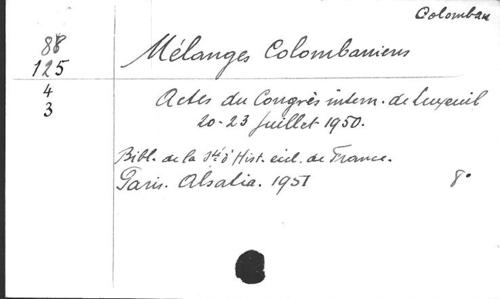 Colomban
88
125
4
3
Mélanges Colombaniens
Actes du Congrès intern. de Luxeuil
20-23 Juillet 1950.
Bibl. de la Sté d'Hist. eccl. de France.
Paris. Alsatia. 1951 8°